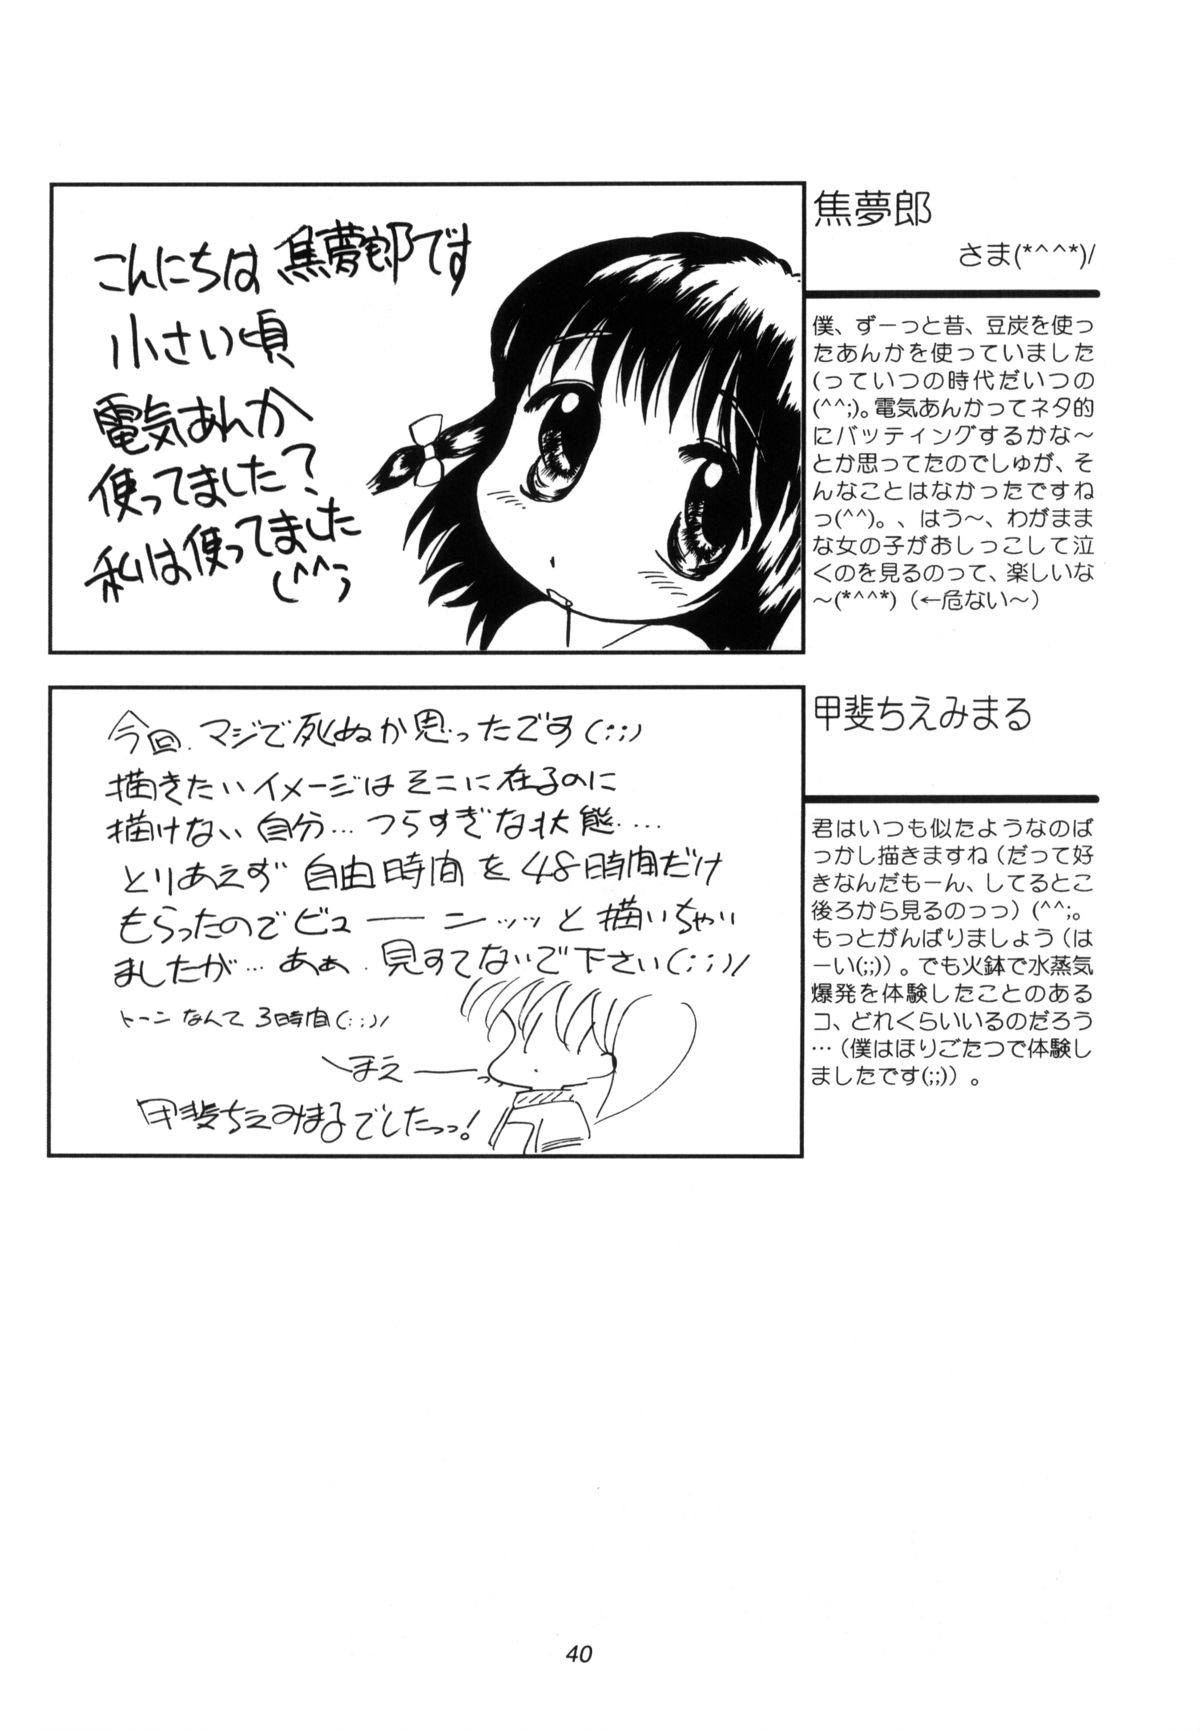 焦夢郎
さま(*^^*)/
こんにちは 焦夢郎です
小さい頃
電気あんか
使ってました?
私は使ってました
(^^;)
僕、ずーっと昔、豆炭を使っ
たあんかを使っていました
(っていつの時代だいつの
(^^;)。電気あんかってネタ的
にバッティングするかな〜
とか思ってたのでしゅが、そ
んなことはなかったですね
っ(^^)。、はう〜、わがまま
な女の子がおしっこして泣
くのを見るのって、楽しいな
〜(*^^*)（←危ない〜）
甲斐ちえみまる
今回、マジで死ぬか思ったです(;;)
描きたいイメージはそこに在るのに
描けない自分…つらすぎな状態‥‥
とりあえず自由時間を48時間だけ
もらったのでビューーンッッと描いちゃい
ましたが…あぁ、見すてないで下さい(;;)/
トーンなんて3時間(;;)/
まえ
甲斐ちえみまるでしたっっ!
君はいつも似たようなのば
っかし描きますね（だって好
きなんだもーん、してるとこ
後ろから見るのっっ）(^^;。
もっとがんばりましょう（は
ーい(;;)）。でも火鉢で水蒸気
爆発を体験したことのある
コ、どれくらいいるのだろう
…（僕はほりごたつで体験し
ましたです(;;)）。
40